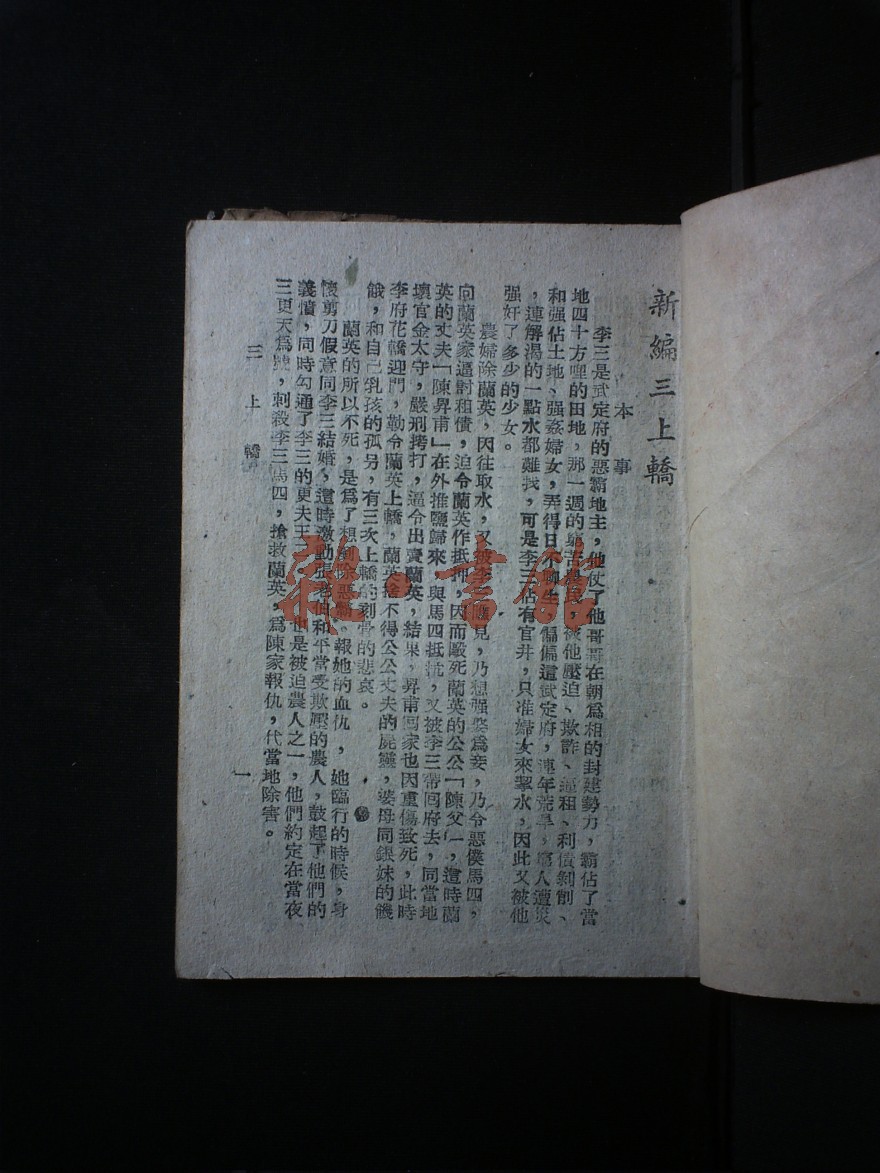 新編三上轎
本事
李三是武定府的惡霸地主，他仗了他哥哥在朝爲相的封建勢力，霸佔了當
地四十方哩的田地，那一週的窮苦農民，被他壓迫、欺詐、逼租、利債剝削、
和强佔土地、强姦婦女，弄得日不聊生，偏偏這武定府，連年荒旱，窮人遭災
，連解渴的一點水都難找，可是李三佔有官井，只准婦女來挈水，因此又被他
强奸了多少的少女。
農婦除蘭英，因往取水，又被李三瞧見，乃想强娶爲妾，乃令惡僕馬四，
向蘭英家逼討租債，迫令蘭英作抵押，因而毆死蘭英的公公「陳父」，這時蘭
英的丈夫「陳昇甫」在外推鹽歸來，與馬四抵抗，又被李三帶回府去，同當地
壞官金太守，嚴刑拷打，逼令出賣蘭英，結果，昇甫回家也因重傷致死，此時
李府花轎迎門，勒令蘭英上轎，蘭英捨不得公公丈夫的屍靈，婆母同銀妹的饑
餓，和自己乳孩的孤另，有三次上轎的刻骨的悲哀。
蘭英的所以不死，是爲了想剷除惡霸。報她的血仇，她臨行的時候，身
懷剪刀假意同李三結婚，這時激動張老伯和平當受欺壓的農人，鼓起了他們的
義憤，同時勾通了李三的更夫王二，也是被迫農人之一，他們約定在當夜
三更天爲號，刺殺李三馬四，搶救蘭英，爲陳家報仇，代當地除害。
三上轎
一